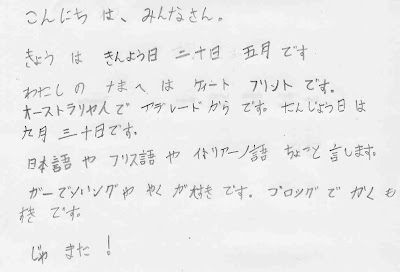 こんにちは、みんなさん。
きょう は きんよう日 二十日 五月 です
わたしの なまへ は ケィート フリント です。
オーストラリヤ人で アデレード から です。たんじょう日 は
九月 三十日です。
日本語 や フリス語 や イタリアーノ語 ちょっと 言します。
ガーでソイング や やく が 大すき です。ブロッグ で かく も
すき です。
じゃ また！